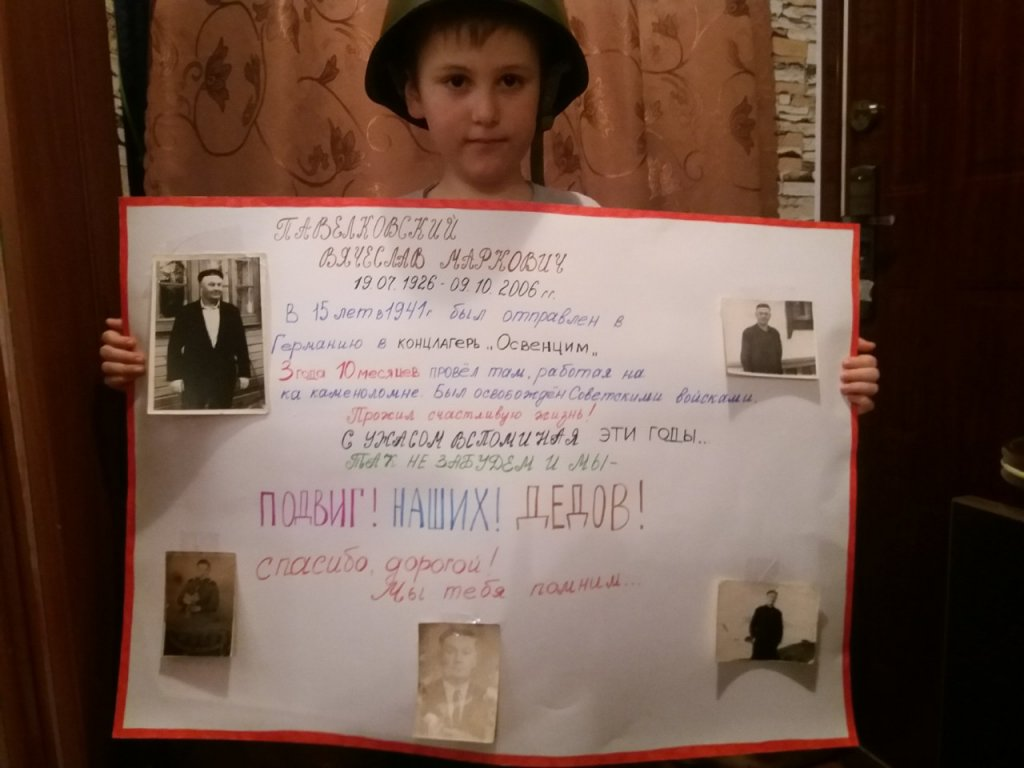 ПАВЕЛКОВСКИЙ
ВЯЧЕСЛАВ МАРКОВИЧ
19.07.1926 - 09.10.2006 гг.
В 15 лет в 1941г был отправлен в
Германию в концлагерь „Освенцим„
3 года 10 месяцев провёл там, работая на
ка каменоломне. Был освобождён Советскими войсками.
Прожил счастливую жизнь!
С УЖАСОМ ВСПОМИНАЯ ЭТИ ГОДЫ...
ТАК НЕ ЗАБУДЕМ И МЫ-
ПОДВИГ! НАШИХ! ДЕДОВ!
спасибо, дорогой!
Мы тебя помним...